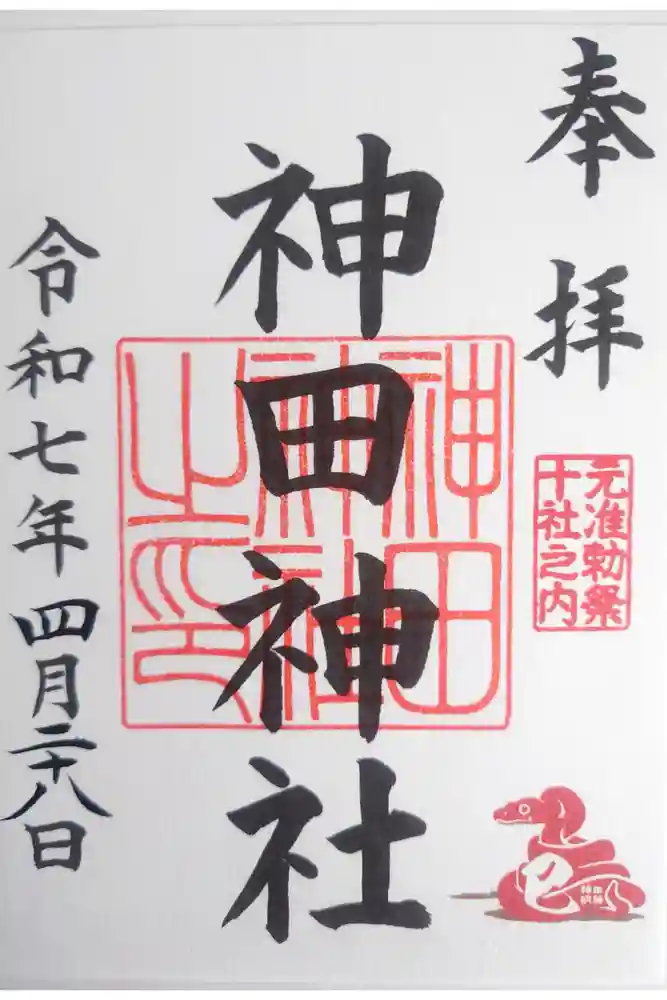 奉拝
元准勅祭
十社之内
神田神社
神田
神社
之印
令和七年四月二十八日
巳